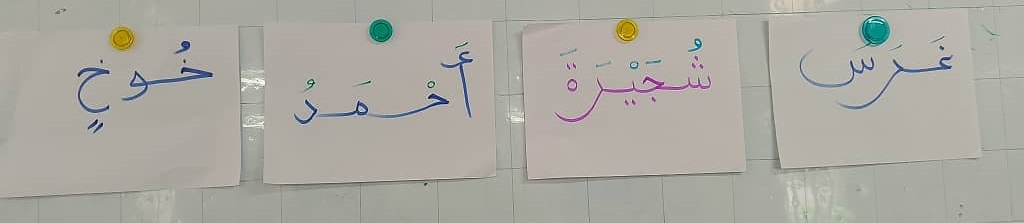 غَرَسَ شُجَيْرَةَ أَحْمَدُ خُوخٍ